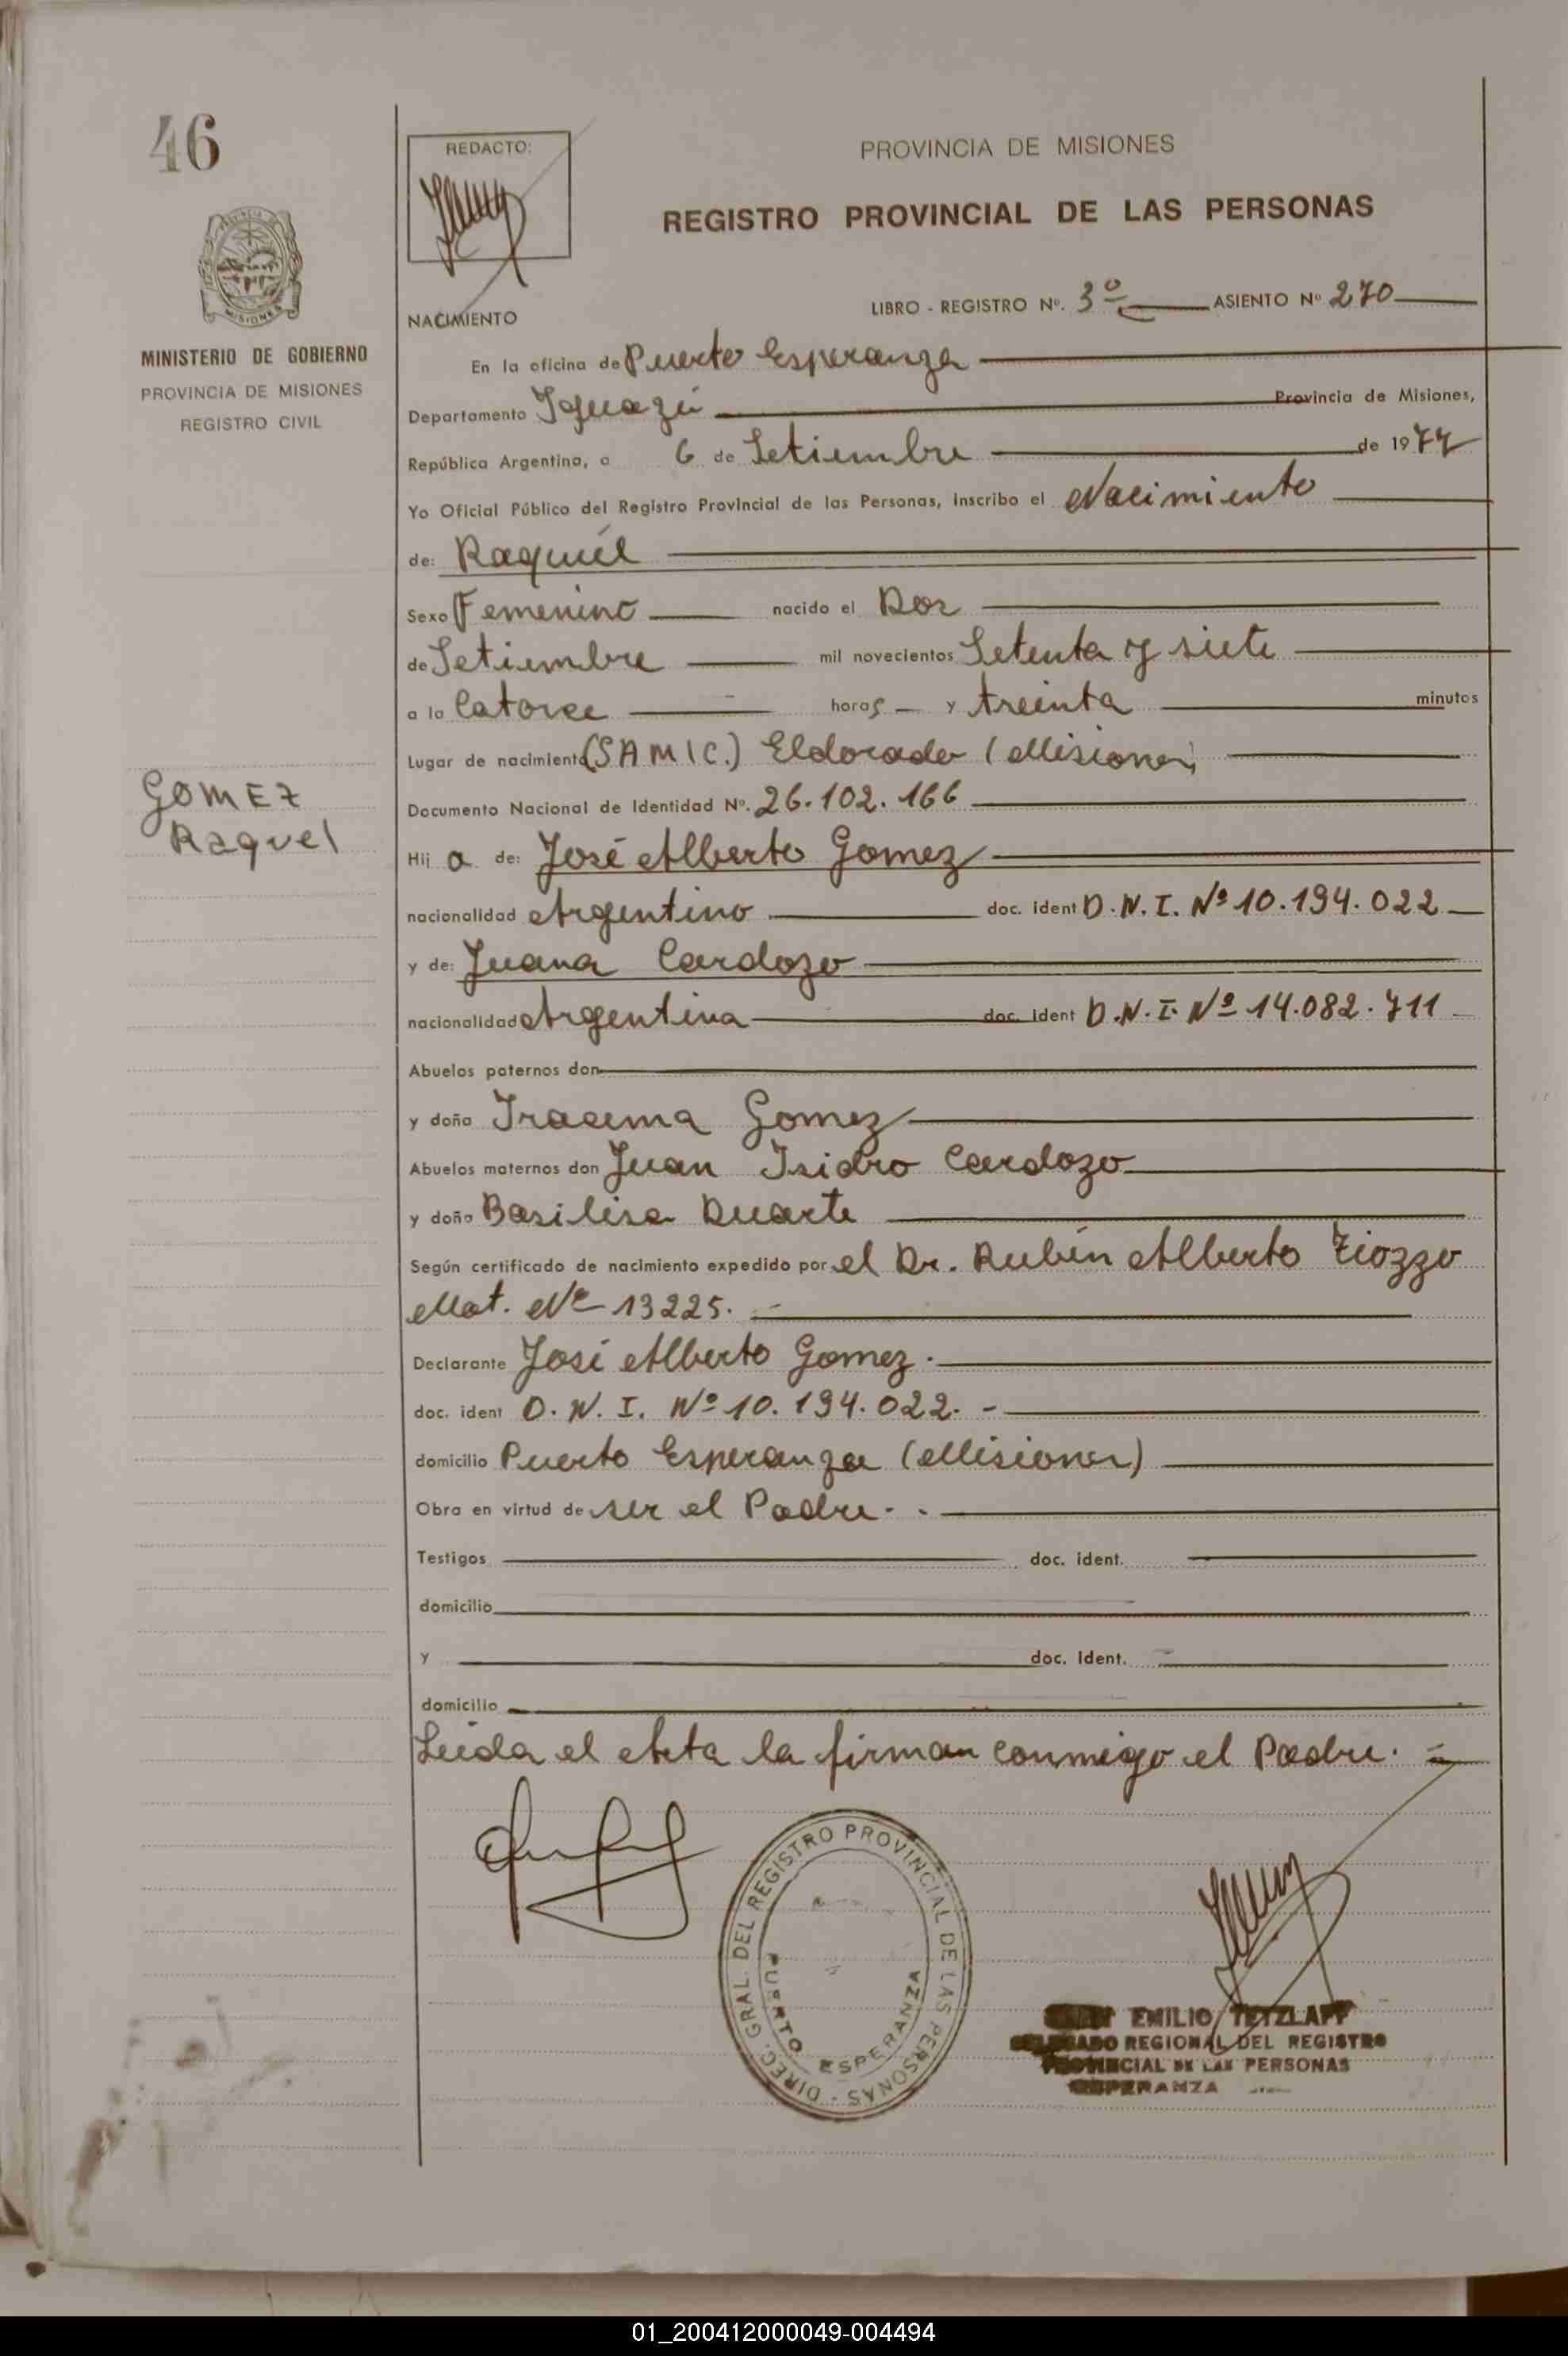 46
REDACTO:
PROVINCIA DE MISIONES
REGISTRO PROVINCIAL DE LAS PERSONAS
MINISTERIO DE GOBIERNO
PROVINCIA DE MISIONES
REGISTRO CIVIL
NACIMIENTO
LIBRO - REGISTRO Nº. 3º ASIENTO Nº 270
En la oficina de Puerto Esperanza
Departamento Iguazú Provincia de Misiones,
República Argentina, a 6 de Setiembre de 1977
Yo Oficial Público del Registro Provincial de las Personas, inscribo el Nacimiento
de: Raquél
Sexo Femenino nacido el Dos
de Setiembre mil novecientos Setenta y siete
a la Catorce horas y treinta minutos
Lugar de nacimiento (SAMIC.) Eldorado (Misiones)
Documento Nacional de Identidad Nº. 26.102.166
GOMEZ
Raquel
Hij a de: José Alberto Gomez
nacionalidad Argentino doc. ident D.N.I. Nº 10.194.022
y de: Juana Cardozo
nacionalidad Argentina doc. ident D.N.I. Nº 14.082.711
Abuelos paternos don
y doña Iracema Gomez
Abuelos maternos don Juan Isidro Cardozo
y doña Basilisa Duarte
Según certificado de nacimiento expedido por el Dr. Rubén Alberto Tiozzo
Mat. Nº 13225.
Declarante José Alberto Gomez.
doc. ident D.N.I. Nº 10.194.022. -
domicilio Puerto Esperanza (Misiones)
Obra en virtud de ser el Padre. .
Testigos doc. ident.
domicilio
y doc. ident.
domicilio
Leida el Acta la firman conmigo el Padre. =
DIREC. GRAL. DEL REGISTRO PROVINCIAL DE LAS PERSONAS -
PUERTO ESPERANZA
EMILIO TETZLAFF
DELEGADO REGIONAL DEL REGISTRO
PROVINCIAL DE LAS PERSONAS
ESPERANZA
01_200412000049-004494